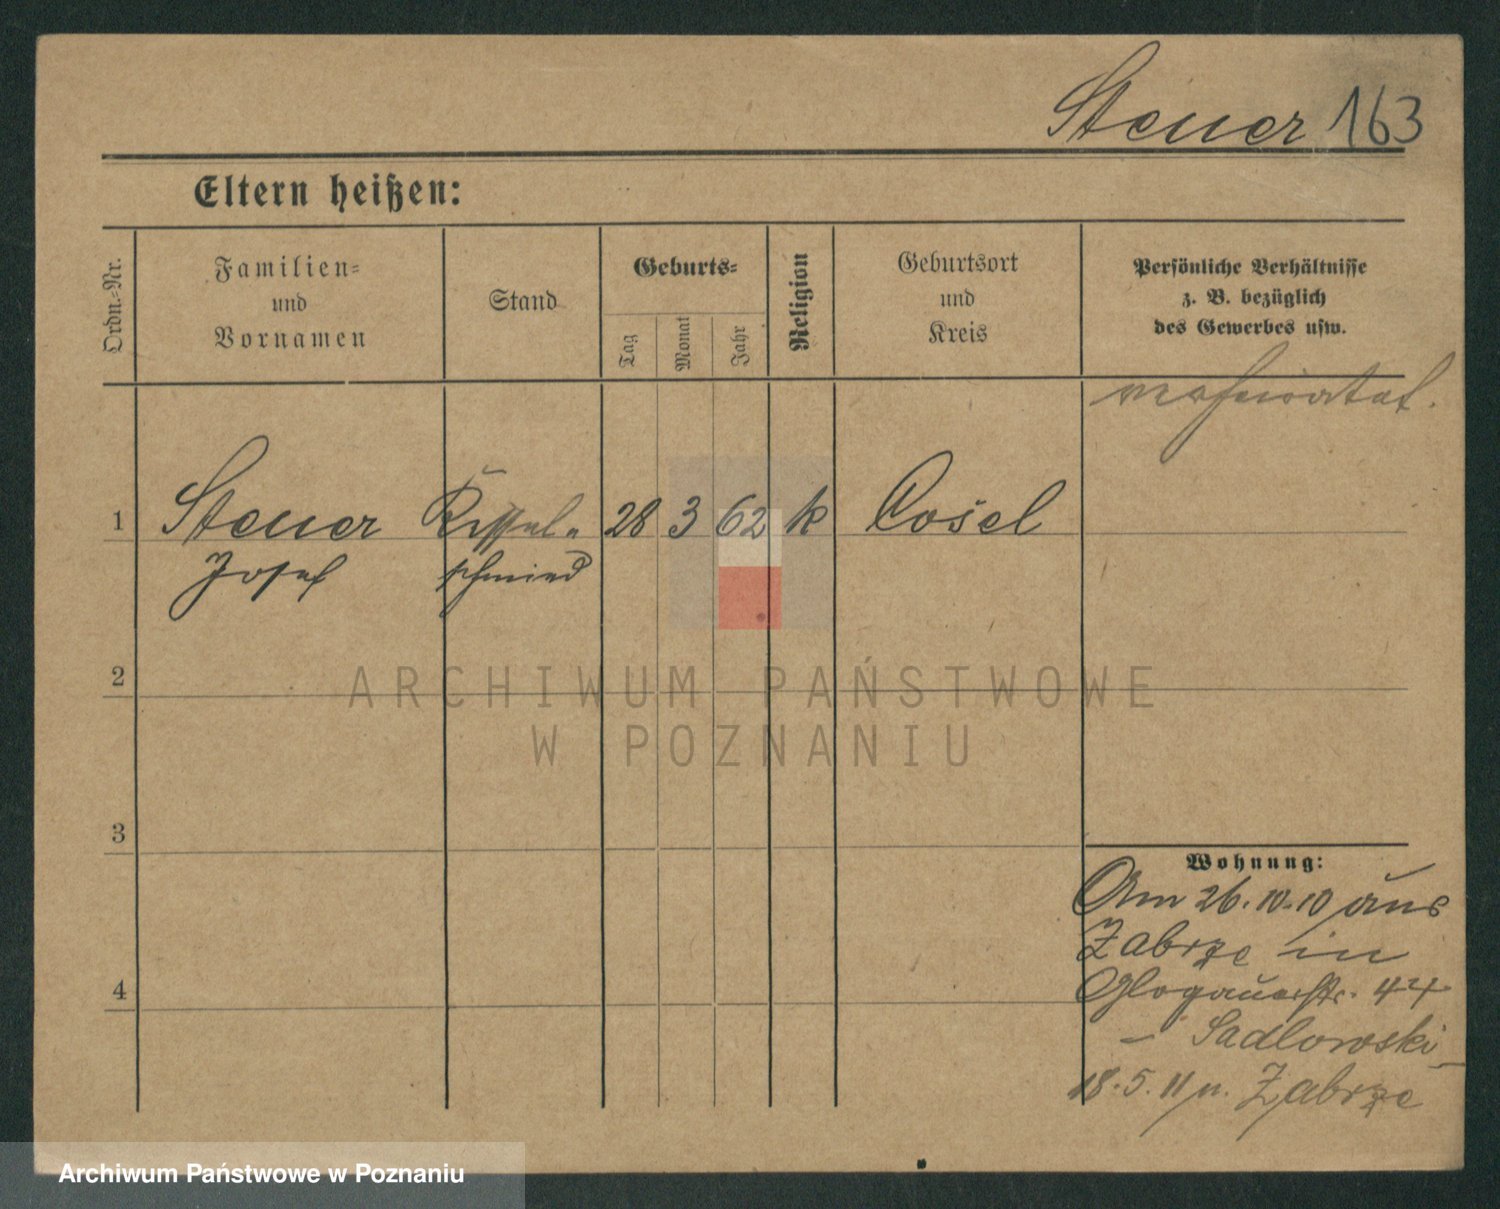 Steuer 163
Eltern heißen:
Ordn.-Nr.
Familien-
und
Vornamen
Stand
Geburts-
Tag
Monat
Jahr
Religion
Geburtsort
und
Kreis
Persönliche Verhältnisse
z. B. bezüglich
des Gewerbes usw.
verheiratet.
1 Steuer Kessel- 28 3 62 k Cosel
Josef schmied
2
3
4
Wohnung:
Am 26.10.10 aus
Zabrze in
Glogauerstr. 44
- Sadlowski -
18.5.11 n. Zabrze
ARCHIWUM PAŃSTWOWE
W POZNANIU
Archiwum Państwowe w Poznaniu